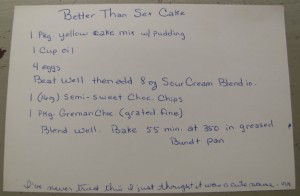 Better Than Sex Cake
1 Pkg yellow cake mix w/ pudding
1 Cup oil
4 eggs
Beat Well then add 8 oz Sour Cream Blend in.
1 (6oz) Semi-sweet Choc. Chips
1 Pkg. German Choc. (grated fine)
Blend well. Bake 55 min. at 350 in greased
Bundt pan
I've never tried this I just thought it was a cute name.